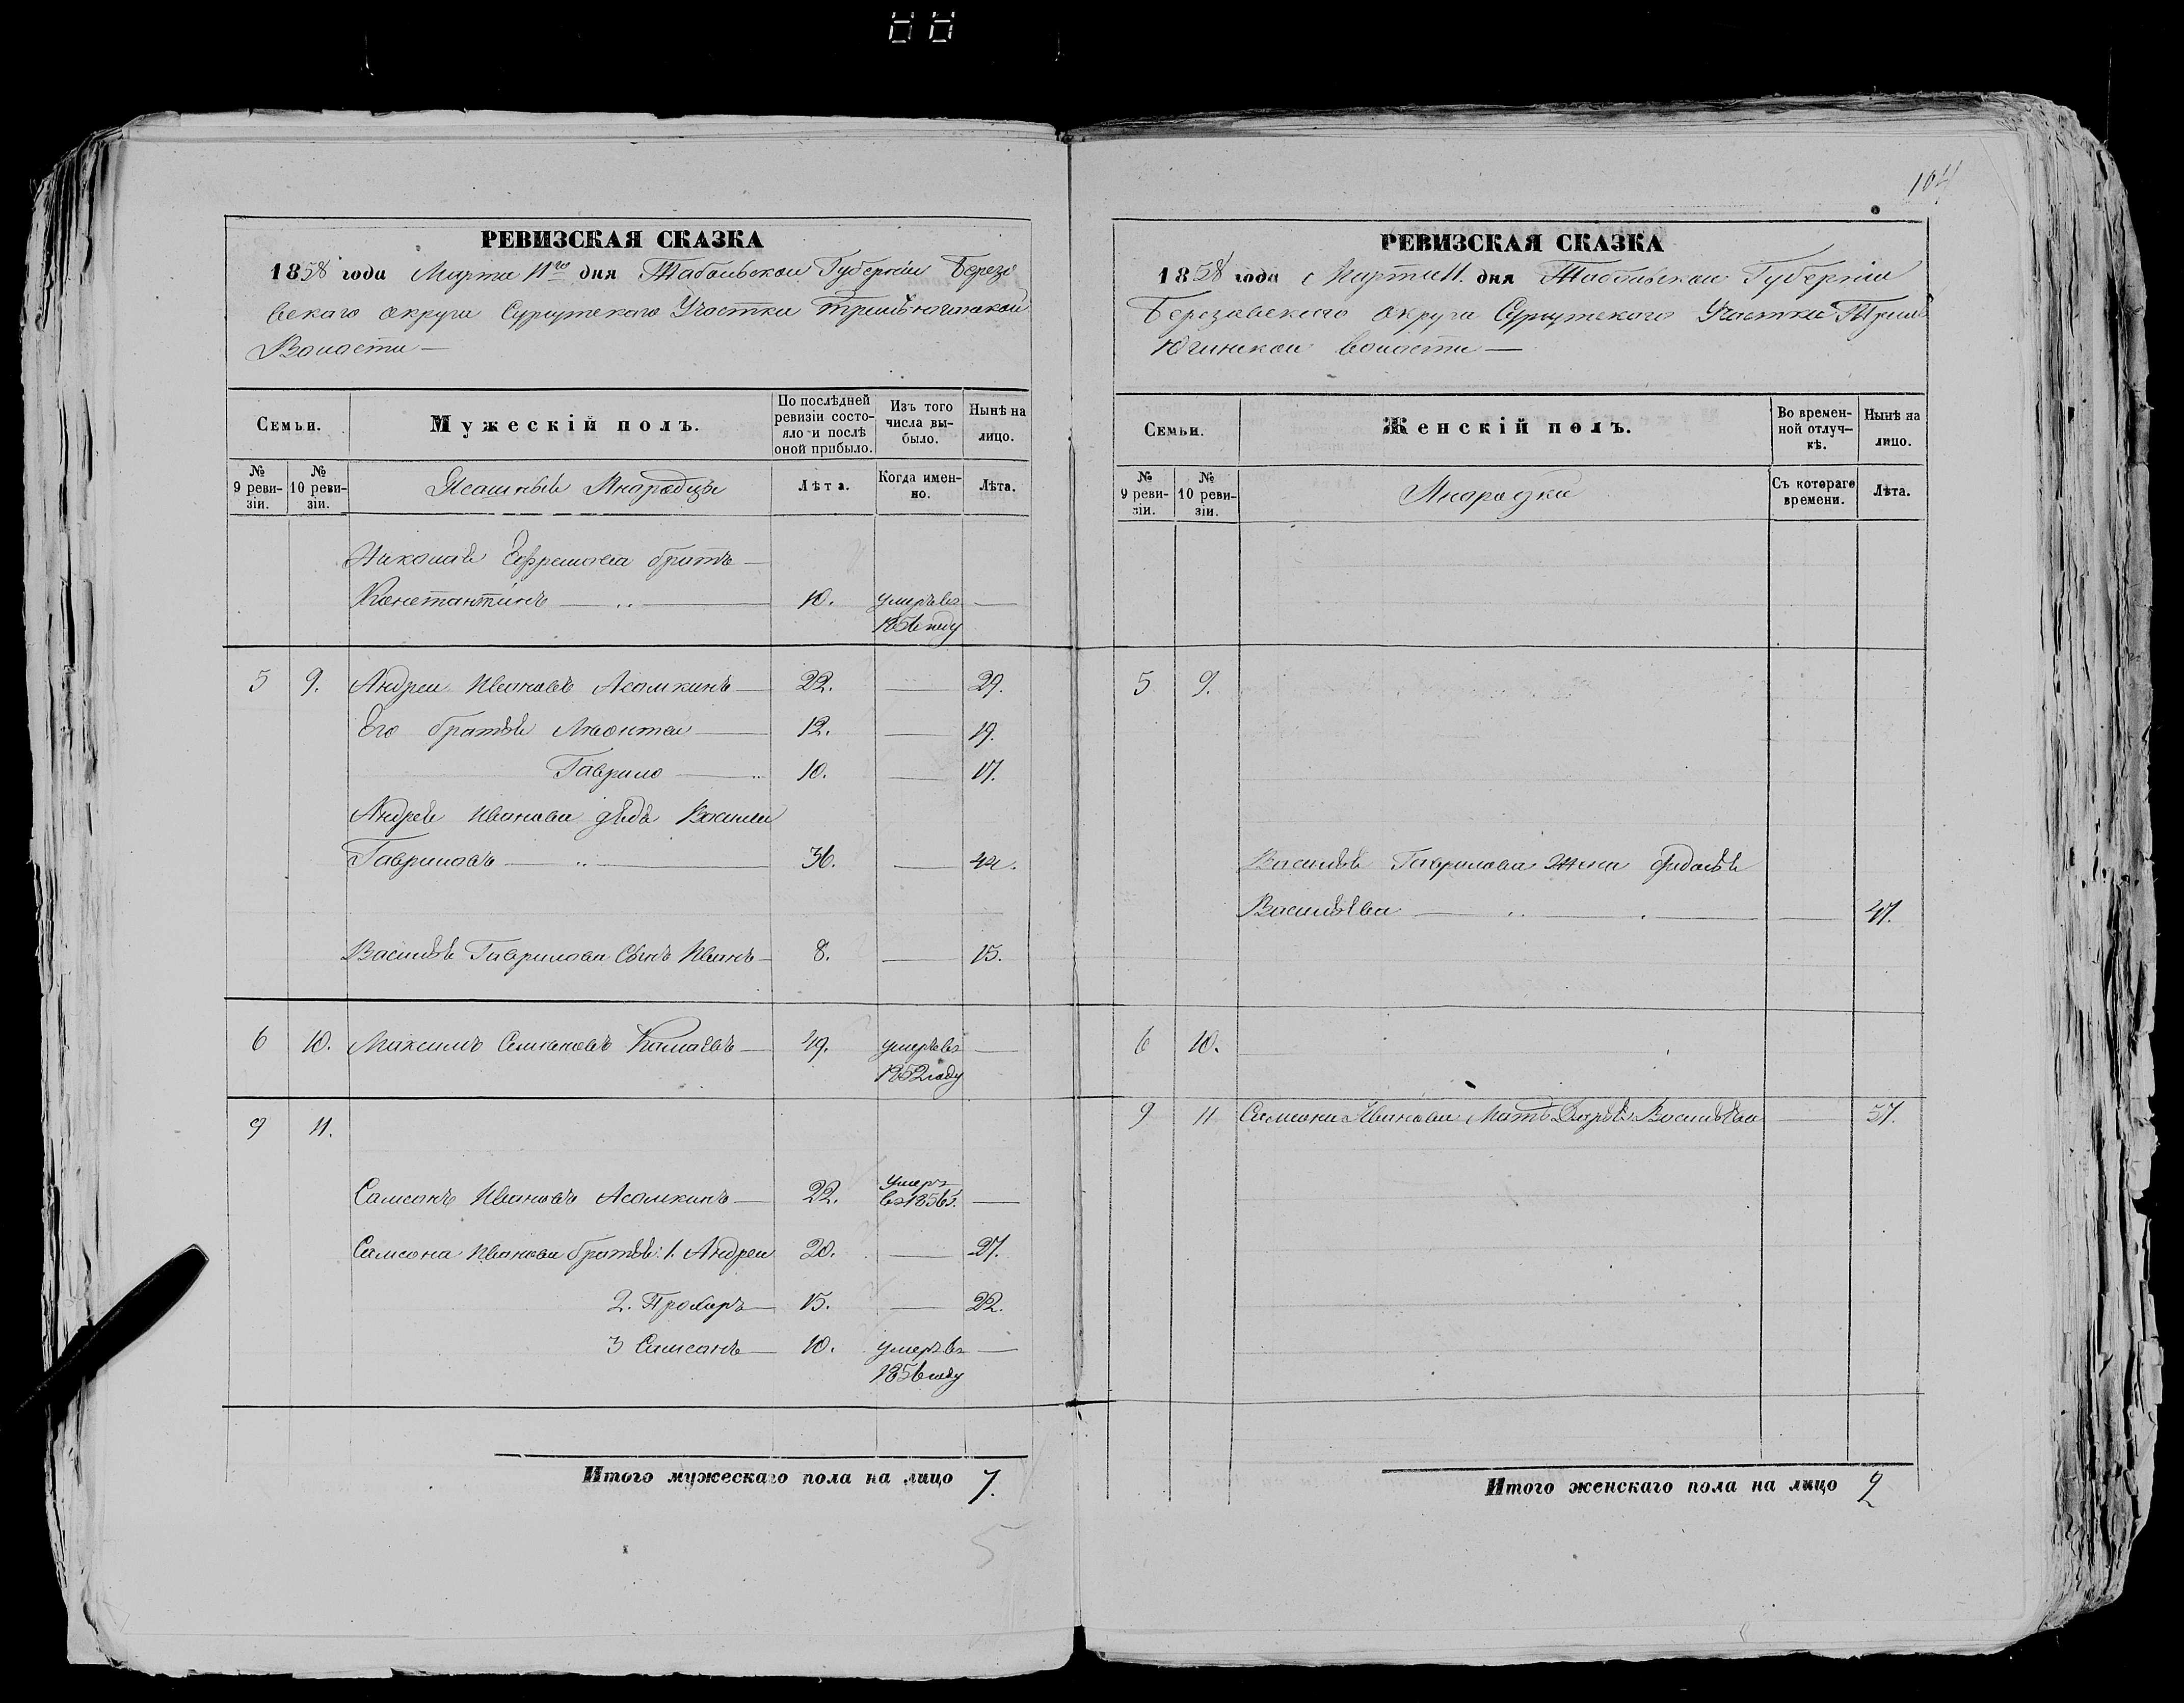 104
РЕВИЗСКАЯ СКАЗКА
1858 года Марта 11го дня Тобольской Губерніи Березо
вскаго округа Сургутскаго Участка Тремъюгинской
Волости —
Семьи.
Мужескій полъ.
По послѣдней
ревизіи состо-
яло и послѣ
оной прибыло.
Изъ того
числа вы-
было.
Нынѣ на
лицо.
№
9 реви-
зіи.
№
10 реви-
зіи.
Ясашные Инородцы
Лѣта.
Когда имен-
но.
Лѣта.
Николая Ефремова братъ —
Константинъ — 10. умеръ въ —
1856 году
5 9. Андреи Ивановъ Асамкинъ — 22. — 29.
Его братья Леонтеи — 12. — 19.
Гаврило — 10. — 17.
Андрея Иванова дядя Василеи
Гавриловъ — 36. — 44.
Василья Гаврилова Сынъ Иванъ — 8. — 15.
6 10. Максимъ Семеновъ — 49. умеръ въ —
1852 году
9 11.
Самсонъ Ивановъ Асамкинъ — 22. умеръ
въ 1856 г. —
Самсона Иванова братья: 1. Андреи 20. — 27.
2. Прохоръ — 15. — 22.
3 Самсонъ — 10. умеръ въ —
1856 году
Итого мужескаго пола на лицо 7.
5
РЕВИЗСКАЯ СКАЗКА
1858 года Марта 11. дня Тобольской Губерніи
Березовскаго округа Сургутскаго Участка Тремъ
Югинской волости —
Семьи.
Женскій полъ.
Во времен-
ной отлуч-
кѣ.
Нынѣ на
лицо.
№
9 реви-
зіи.
№
10 реви-
зіи.
Инородки
Съ котораго
времени.
Лѣта.
5 9.
Василья Гаврилова Жена
Васильева — — 47.
6 10.
9 11 Самсона Иванова Мать Дарья Васильева — 57.
Итого женскаго пола на лицо 2